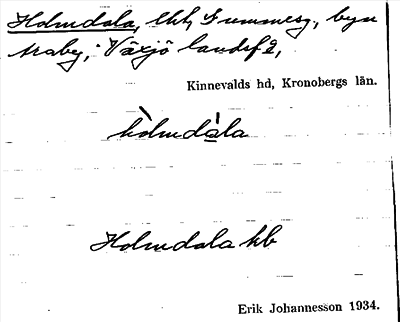 Holmdala, lht, Gummesg., byn
Araby, Växjö landsf 2,
Kinnevalds hd, Kronobergs län.
hòlmdàla
Holmdala hb
Erik Johannesson 1934.